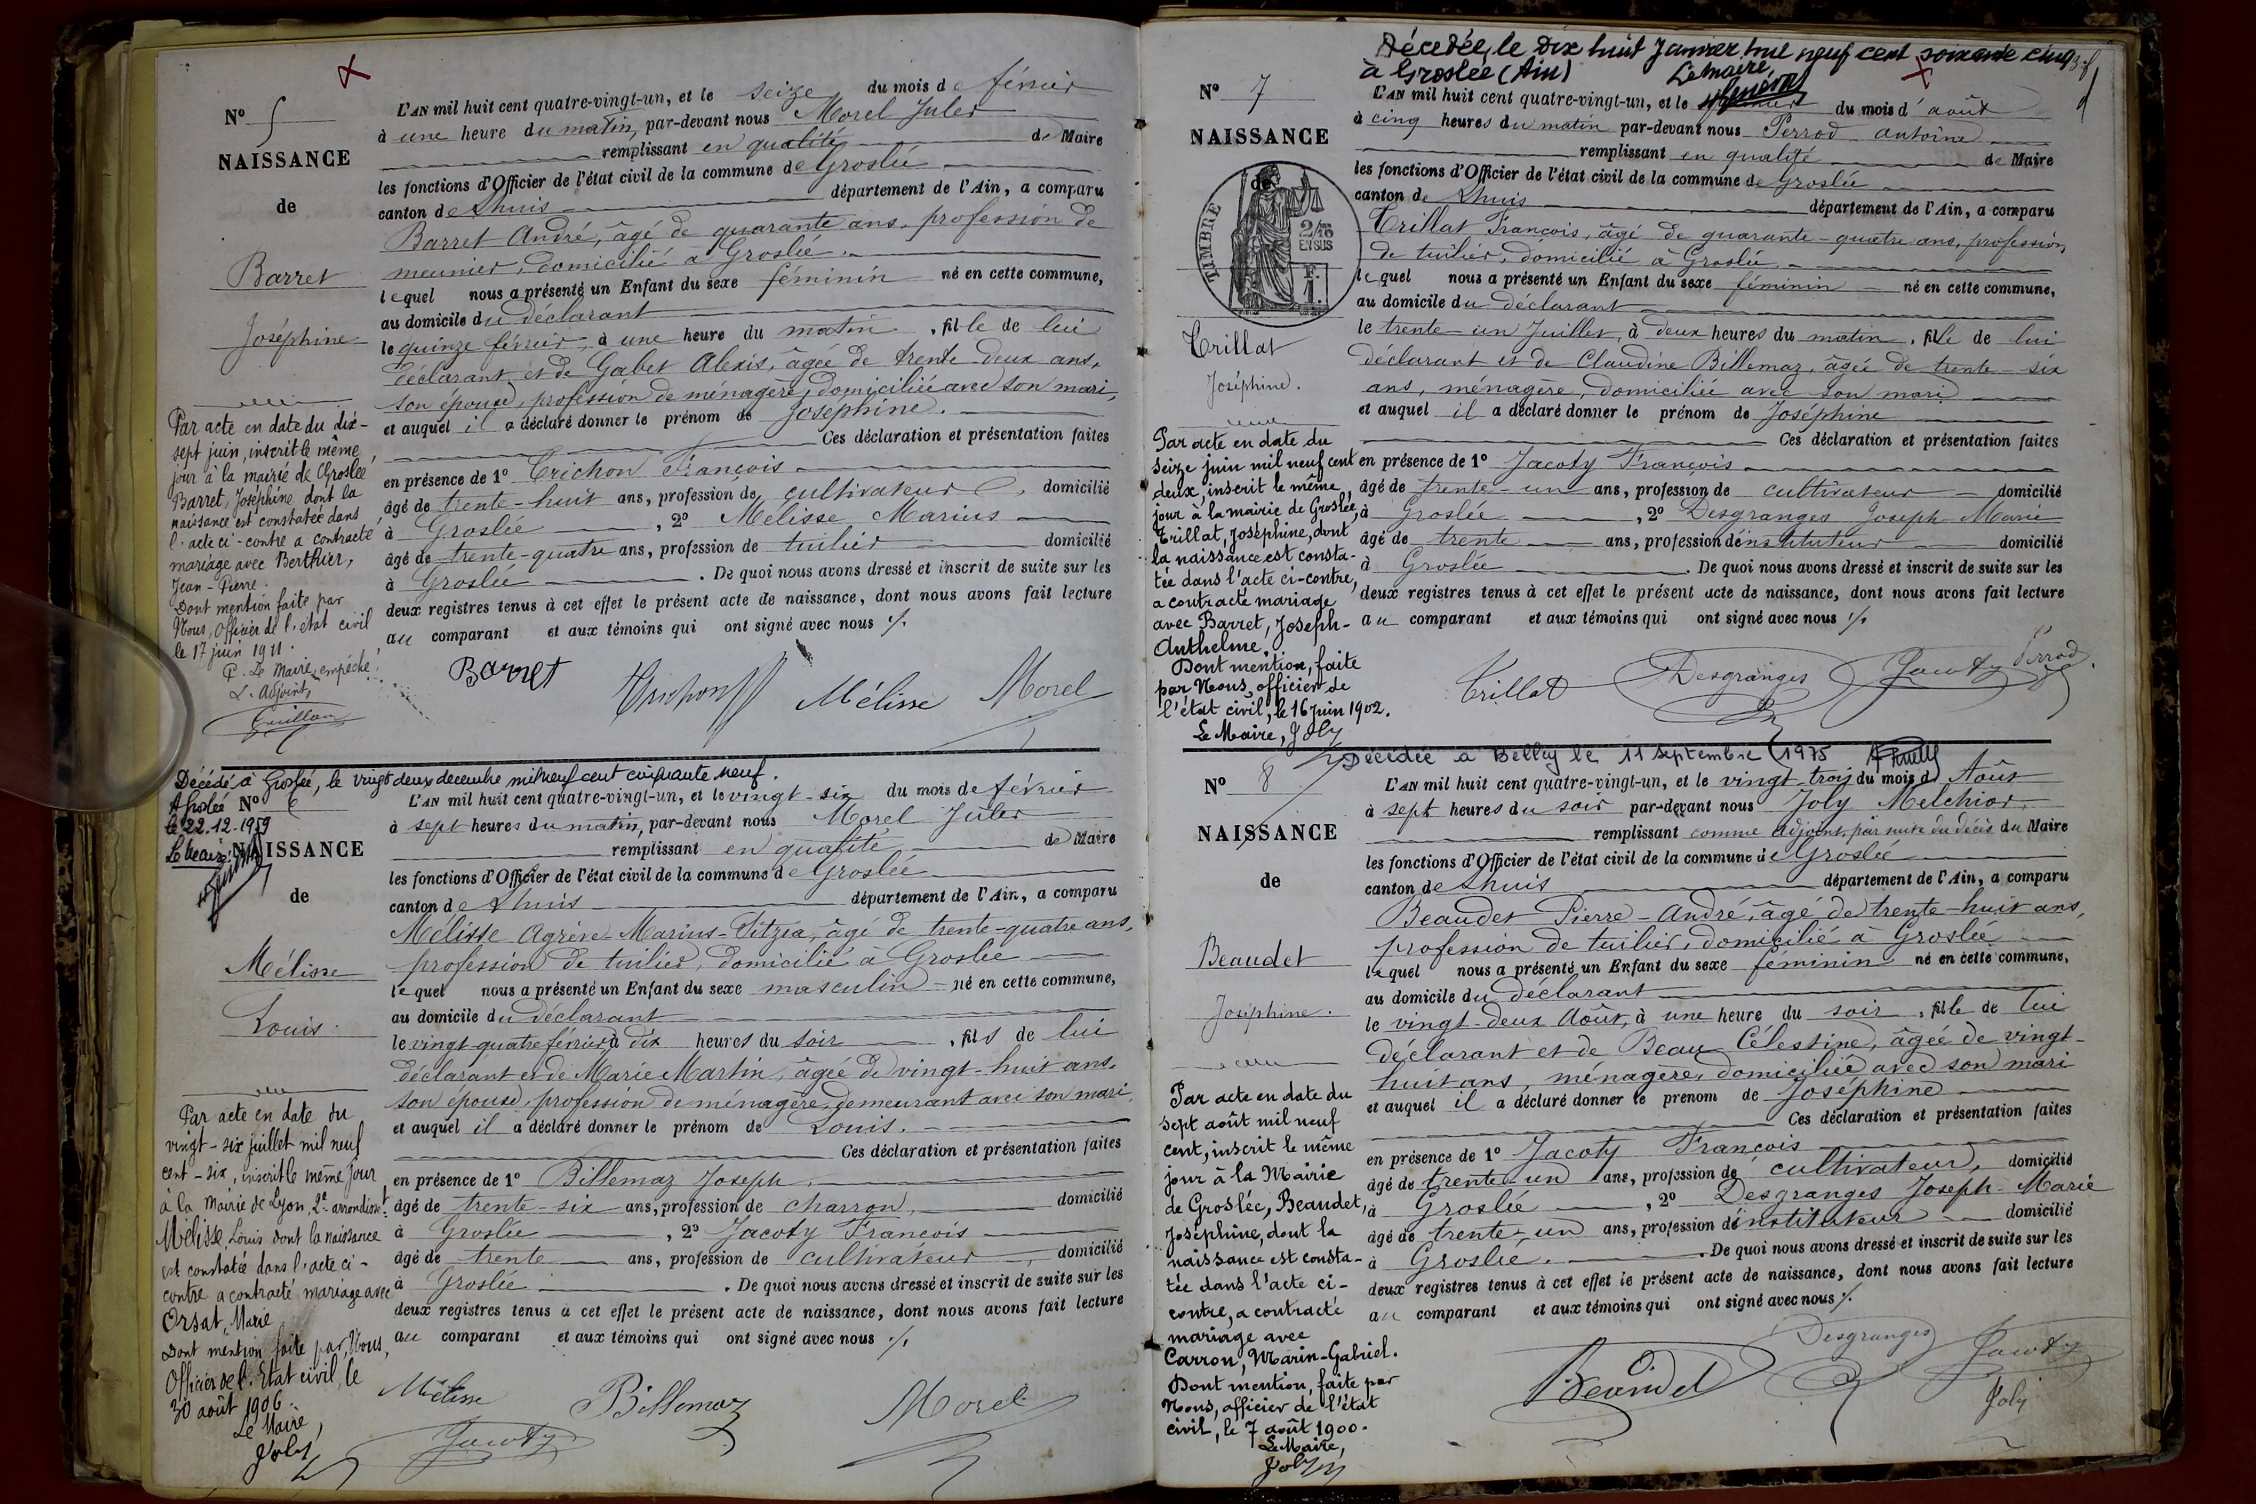 Nº 5
NAISSANCE
de
Barret
Joséphine
Par acte en date du dix-
sept juin, inscrit le même
jour à la mairie de Groslée,
Barret, Joséphine dont la
naissance est constatée dans
l'acte ci-contre a contracté
mariage avec Berthier,
Jean-Pierre.
Dont mention faite par
Nous, Officier de l'état civil
le 17 juin 1911.
P. Le Maire empêché
L'Adjoint,
L'AN mil huit cent quatre-vingt-un, et le seize du mois de février
à une heure du matin, par-devant nous Morel Jules
remplissant en qualité de Maire
les fonctions d'Officier de l'état civil de la commune de Groslée
canton de Lhuis département de l'Ain, a comparu
Barret André, âgé de quarante ans, profession de
meunier, domicilié à Groslée.
lequel nous a présenté un Enfant du sexe féminin né en cette commune,
au domicile du déclarant
le quinze février, à une heure du matin, fille de lui
déclarant et de Gabet Alexis, âgée de trente deux ans,
son épouse, profession de ménagère, domiciliée avec son mari,
et auquel il a déclaré donner le prénom de Joséphine.
Ces déclaration et présentation faites
en présence de 1º Crichon François
âgé de trente-huit ans, profession de cultivateur, domicilié
à Groslée, 2º Mélisse Marius
âgé de trente-quatre ans, profession de tuilier domicilié
à Groslée. De quoi nous avons dressé et inscrit de suite sur les
deux registres tenus à cet effet le présent acte de naissance, dont nous avons fait lecture
au comparant et aux témoins qui ont signé avec nous ./.
Barret
Crichon
Mélisse
Morel
Décédé à Groslée, le vingt deux décembre mil neuf cent cinquante neuf.
A Groslée
le 22.12.1959
Le Maire,
Nº 6
NAISSANCE
de
Mélisse
Louis.
Par acte en date du
vingt-six juillet mil neuf
cent-six, inscrit le même jour
à la Mairie de Lyon, 2e arrondisnt.
Mélisse, Louis dont la naissance
est constatée dans l'acte ci-
contre a contracté mariage avec
Orsat, Marie
Dont mention faite par Nous,
Officier de l'Etat civil, le
30 août 1906.
Le Maire,
Joly
L'AN mil huit cent quatre-vingt-un, et le vingt-six du mois de février
à sept heures du matin, par-devant nous Morel Jules
remplissant en qualité de Maire
les fonctions d'Officier de l'état civil de la commune de Groslée
canton de Lhuis département de l'Ain, a comparu
Mélisse Agrève Marius-Titzia, âgé de trente-quatre ans,
profession de tuilier, domicilié à Groslée
lequel nous a présenté un Enfant du sexe masculin né en cette commune,
au domicile du déclarant
le vingt-quatre février à dix heures du soir, fils de lui
déclarant et de Marie Martin, âgée de vingt-huit ans,
son épouse, profession de ménagère, demeurant avec son mari,
et auquel il a déclaré donner le prénom de Louis.
Ces déclaration et présentation faites
en présence de 1º Billemaz Joseph,
âgé de trente-six ans, profession de charron, domicilié
à Groslée, 2º Jacoty François
âgé de trente ans, profession de cultivateur, domicilié
à Groslée. De quoi nous avons dressé et inscrit de suite sur les
deux registres tenus à cet effet le présent acte de naissance, dont nous avons fait lecture
au comparant et aux témoins qui ont signé avec nous ./.
Mélisse
Billemaz
Morel
Jacoty
Décédée, le Dix huit Janvier mil neuf cent soixante cinq
à Groslée (Ain)
Le Maire
Nº 7
NAISSANCE
de
TIMBRE
2/10
EN SUS
F.
1.
Trillat
Joséphine.
Par acte en date du
seize juin mil neuf cent
deux, inscrit le même
jour à la mairie de Groslée,
Trillat, Joséphine, dont
la naissance est consta-
tée dans l'acte ci-contre,
a contracté mariage
avec Barret, Joseph-
Anthelme.
Dont mention, faite
par Nous, officier de
l'état civil, le 16 juin 1902.
Le Maire, Joly
L'AN mil huit cent quatre-vingt-un, et le premier du mois d'août
à cinq heures du matin par-devant nous Perrod antoine
remplissant en qualité de Maire
les fonctions d'Officier de l'état civil de la commune de Groslée
canton de Lhuis département de l'Ain, a comparu
Trillat François, âgé de quarante-quatre ans, profession
de tuilier, domicilié à Groslée,
lequel nous a présenté un Enfant du sexe féminin né en cette commune,
au domicile du déclarant
le trente-un Juillet, à deux heures du matin, fille de lui
déclarant et de Claudine Billemaz, âgée de trente-six
ans, ménagère, domiciliée avec son mari
et auquel il a déclaré donner le prénom de Joséphine
Ces déclaration et présentation faites
en présence de 1º Jacoty François
âgé de trente-un ans, profession de cultivateur domicilié
à Groslée, 2º Desgranges Joseph Marie
âgé de trente ans, profession d'instituteur domicilié
à Groslée. De quoi nous avons dressé et inscrit de suite sur les
deux registres tenus à cet effet le présent acte de naissance, dont nous avons fait lecture
au comparant et aux témoins qui ont signé avec nous ./.
Trillat
Desgranges
Jacoty
Perrod
Décédée à Belley le 11 septembre 1975
Nº 8
NAISSANCE
de
Beaudet
Joséphine.
Par acte en date du
sept août mil neuf
cent, inscrit le même
jour à la Mairie
de Groslée, Beaudet,
Joséphine, dont la
naissance est consta-
tée dans l'acte ci-
contre, a contracté
mariage avec
Carron, Marin-Gabriel.
Dont mention, faite par
Nous, officier de l'état
civil, le 7 août 1900.
Le Maire,
Joly
L'AN mil huit cent quatre-vingt-un, et le vingt-trois du mois d'Août
à sept heures du soir par-devant nous Joly Melchior,
remplissant comme adjoint, par suite du décès du Maire
les fonctions d'Officier de l'état civil de la commune de Groslée
canton de Lhuis département de l'Ain, a comparu
Beaudet Pierre-André, âgé de trente-huit ans,
profession de tuilier, domicilié à Groslée
lequel nous a présenté un Enfant du sexe féminin né en cette commune,
au domicile du déclarant
le vingt-deux Août, à une heure du soir, fille de lui
déclarant et de Beau Célestine, âgée de vingt-
huit ans, ménagère, domiciliée avec son mari
et auquel il a déclaré donner le prénom de Joséphine
Ces déclaration et présentation faites
en présence de 1º Jacoty François
âgé de trente-un ans, profession de cultivateur, domicilié
à Groslée, 2º Desgranges Joseph-Marie
âgé de trente-un ans, profession d'instituteur domicilié
à Groslée. De quoi nous avons dressé et inscrit de suite sur les
deux registres tenus à cet effet le présent acte de naissance, dont nous avons fait lecture
au comparant et aux témoins qui ont signé avec nous ./.
Beaudet
Desgranges
Jacoty
Joly